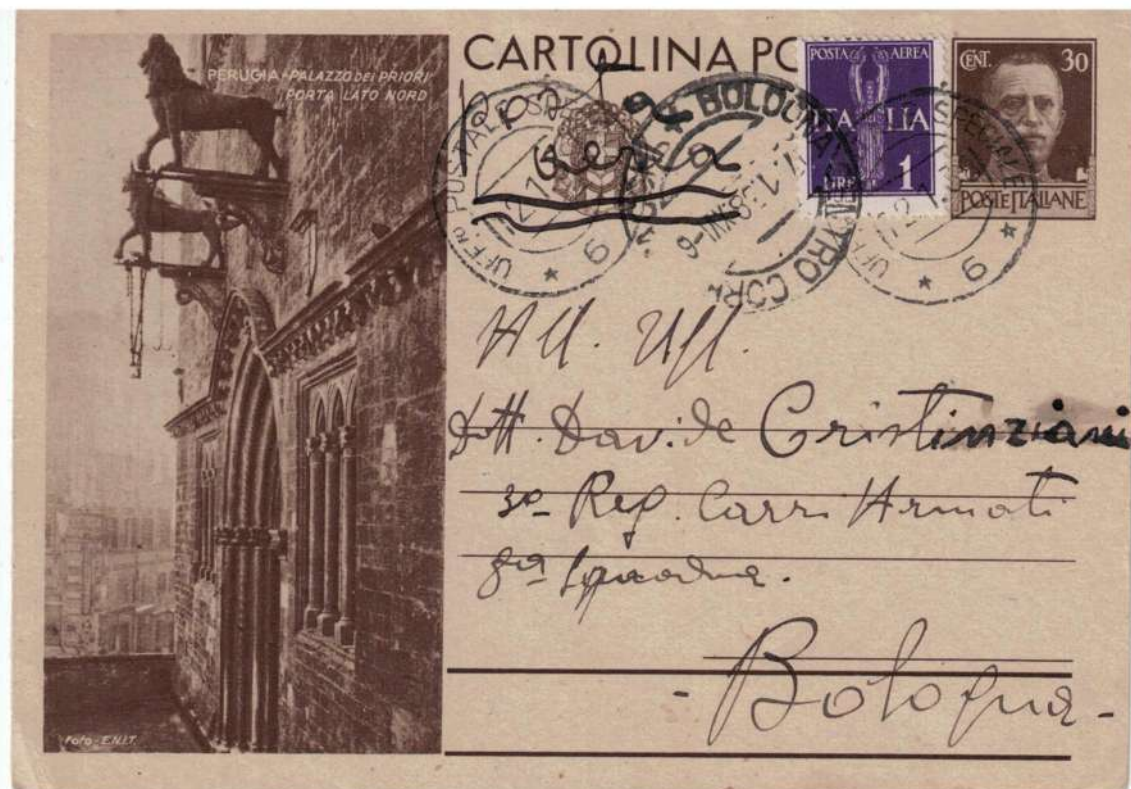 PERUGIA - PALAZZO DEI PRIORI
PORTA LATO NORD
Foto - E.N.I.T.
CARTOLINA PO
POSTA AEREA
ITALIA
LIRE 1
CENT. 30
POSTE ITALIANE
BOLOGNA
UFFICIO POSTALE SPECIALE
* 9
UFFICIO SPECIALE *
* 9
All. Uff.
Dott. Davide Cristinziani
3º Reg. Carri Armati
8ª Squadra.
- Bologna -